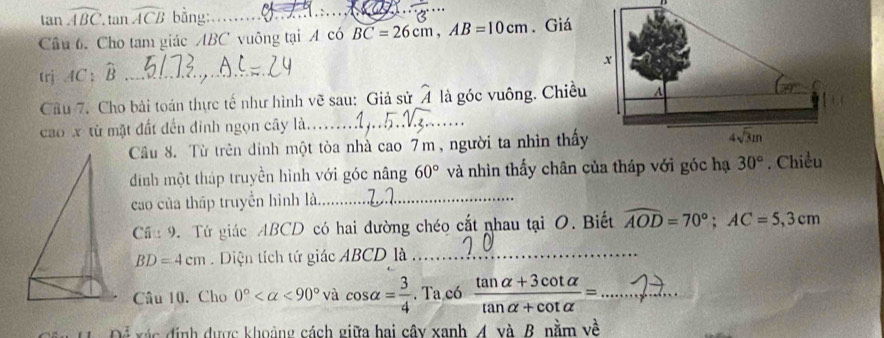 tan ABC. tan ACB bằng:
Câu 6. Cho tam giác ABC vuông tại A có BC = 26 cm , AB = 10 cm . Giá
trị AC ; B̂ 51,73.., AC = 24
x
A
Câu 7. Cho bài toán thực tế như hình vẽ sau: Giả sử Â là góc vuông. Chiều
cao x từ mặt đất đến đỉnh ngọn cây là
4√3m
Câu 8. Từ trên đỉnh một tòa nhà cao 7 m , người ta nhìn thấy
đỉnh một tháp truyền hình với góc nâng 60° và nhìn thấy chân của tháp với góc hạ 30° . Chiều
cao của tháp truyền hình là
Câu 9. Tứ giác ABCD có hai đường chéo cắt nhau tại O. Biết AOD = 70° ; AC = 5,3 cm
BD = 4 cm . Diện tích tứ giác ABCD là
Câu 10. Cho 0° < α < 90° và cos α = 3/4 . Ta có (tan α + 3 cot α)/(tan α + cot α) =
Để xác định được khoảng cách giữa hai cây xanh A và B nằm về